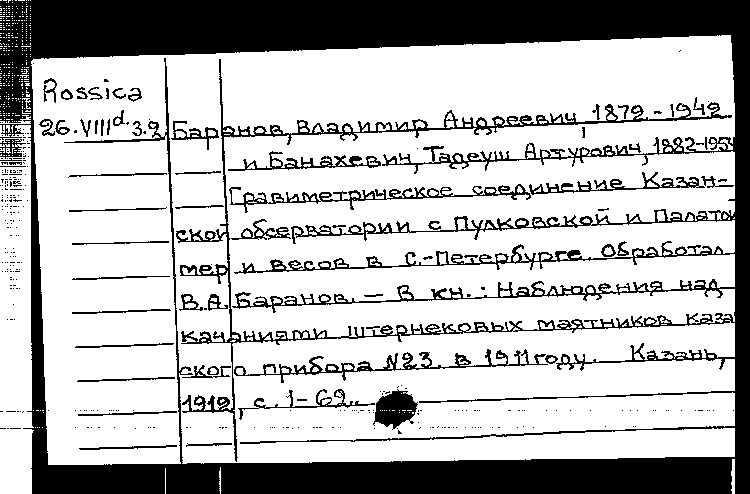 Rossica
26.VIIId.3.2 Баранов, Владимир Андреевич, 1872-1942
и Банахевич, Тадеуш Артурович, 1882-1954
Гравиметрическое соединение Казан-
ской обсерватории с Пулковской и Палатой
мер и весов в С.-Петербурге. Обработал
В.А. Баранов. — В кн.: Наблюдения над
качаниями штернековых маятников каза
ского прибора №23. в 1911 году. Казань,
1912, с. 1-62.